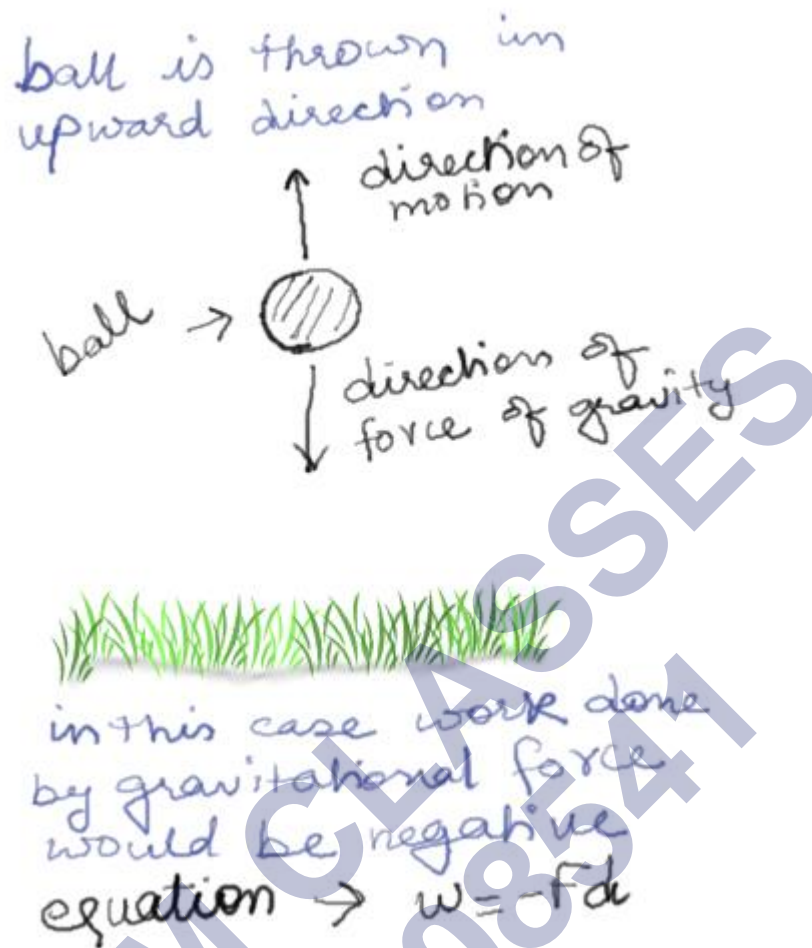 ball is thrown in
upward direction
direction of
motion
ball →
direction of
force of gravity
in this case work done
by gravitational force
would be negative
equation → w = -Fd
M CLASSES
08541